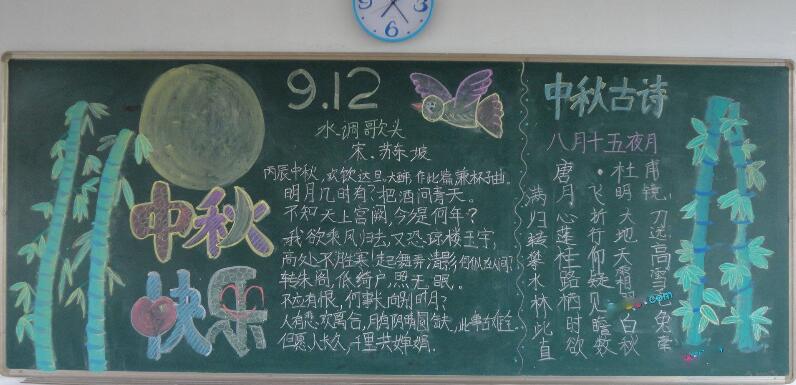 9 3
6
9.12
水调歌头
宋.苏东坡
丙辰中秋,欢饮达旦,大醉,作此篇兼怀子由。
明月几时有?把酒问青天。
不知天上宫阙,今夕是何年?
我欲乘风归去,又恐琼楼玉宇,
高处不胜寒!起舞弄清影,何似在人间?
转朱阁,低绮户,照无眠。
不应有恨,何事长向别时月?
人有悲欢离合,月有阴晴圆缺,此事古难全。
但愿人长久,千里共婵娟。
中秋
快乐
中秋古诗
八月十五夜月
唐·杜甫
满月飞明镜,
归心折大刀
转蓬行地远
攀桂仰天高
水路疑霜雪
林栖见
此时瞻白兔
直欲数秋
.com